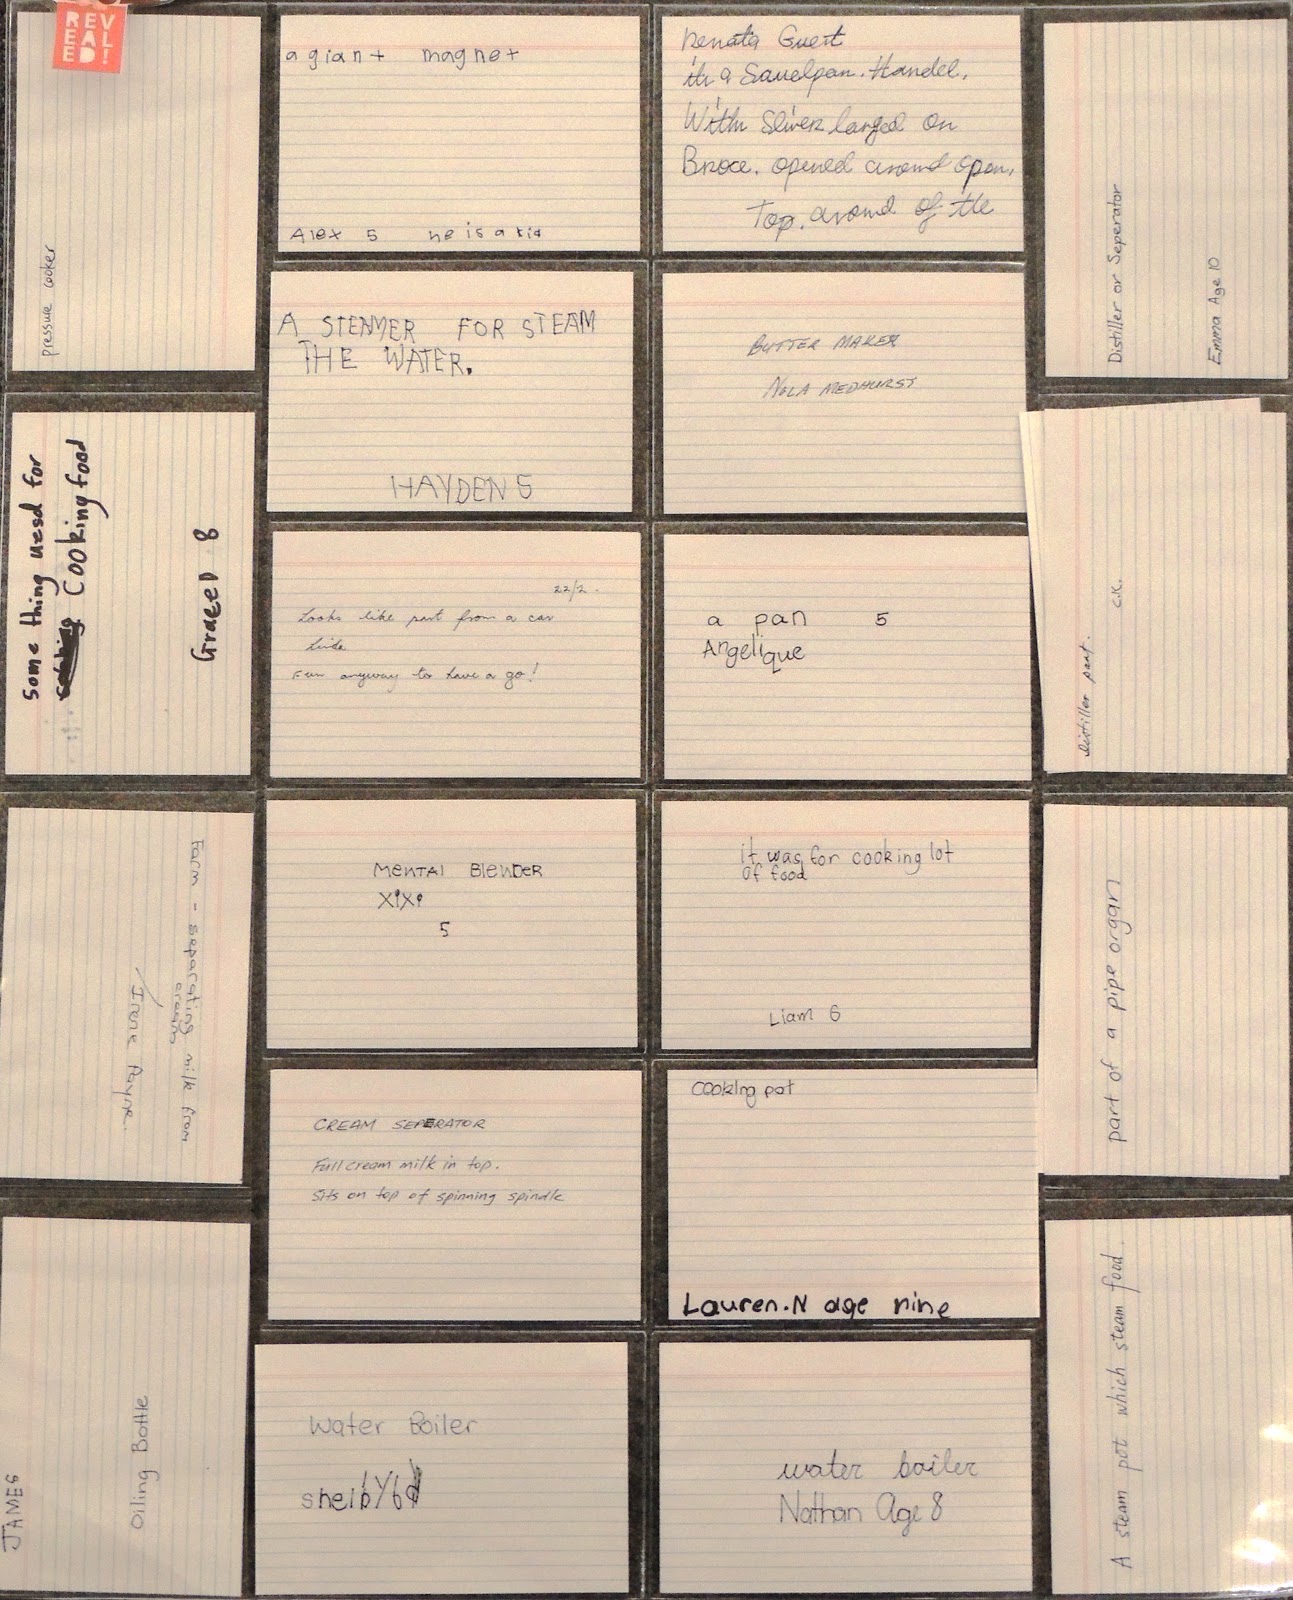 REV
EAL
ED!
pressure cooker
a giant magnet
Alex 5 he is a kid
Renata Guert
its a Sauelpan. Handel,
With Sliver larged on
Broce. opened around open,
Top. around of the
Distiller or Seperator
Emma Age 10
A STEAMER FOR STEAM
THE WATER.
HAYDEN 5
BUTTER MAKER
NOLA MEDHURST
Some thing uesd for
Cooking food
Graeed 8
22/2.
Looks like part from a car
Fun anyway to have a go!
a pan 5
Angelique
distiller part.
C.K.
Farm - separating milk from
cream
Irene Payne.
MENTAl BlENDER
XiXi
5
it was for cooking lot
of food
Liam 6
part of a pipe organ
CREAM SEPERATOR
Full cream milk in top.
Sits on top of spinning spindle
cooking pot
Lauren.N age nine
JAMES
Oiling Bottle
Water Boiler
shelby
water boiler
Nathan Age 8
A steam pot which steam food.